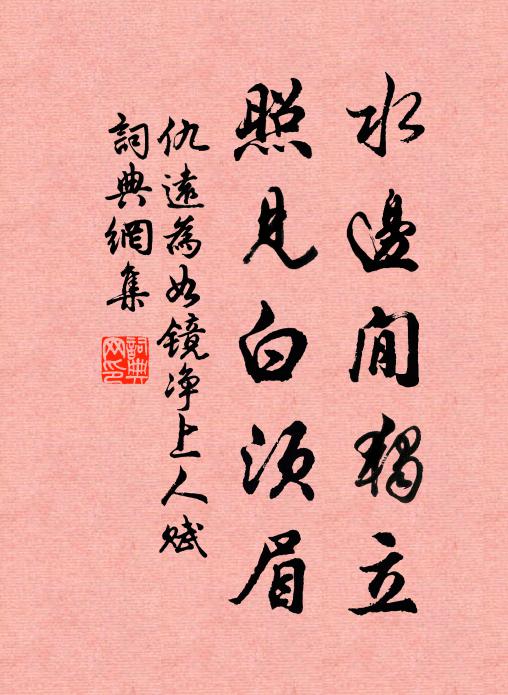 水邊閒獨立
照見白須眉
仇遠為如鏡净上人賦
詞典網集
詞典网印